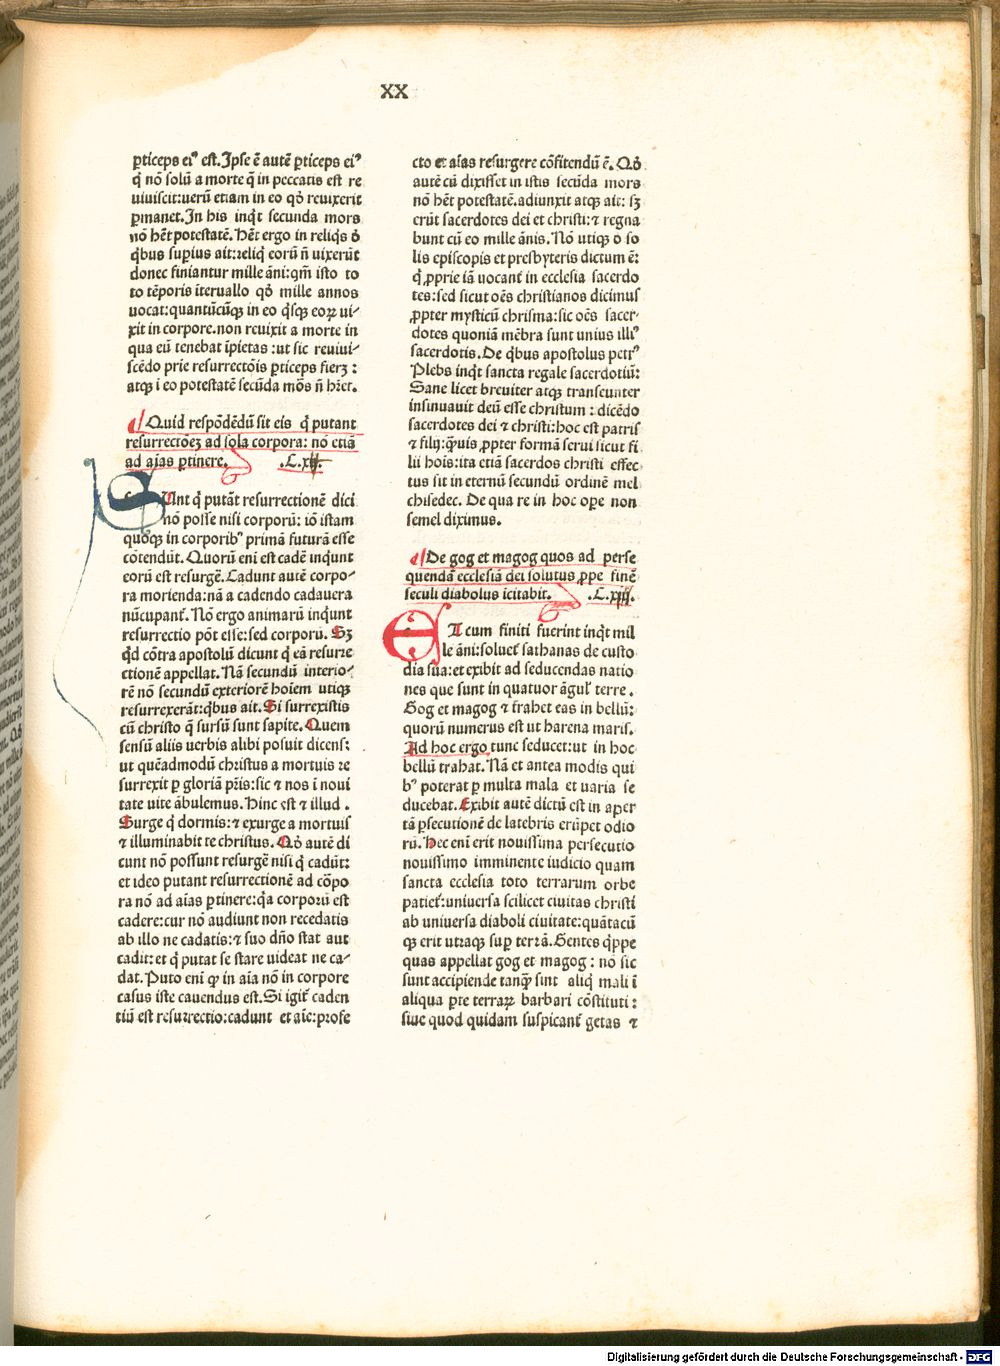 XX
ꝑticeps eiꝰ est. Ipse ē autē ꝑticeps eiꝰ
q̇ nō solū a morte q̄ in peccatis est re
uiuiscit: uerū etiam in eo qd̓ reuixerit
ꝑmanet. In his inq̇t secunda mors
nō hēt potestatē. Hēt ergo in reliq̇s d̓
q̇bus suꝑius ait: reliq̇ eorū n̄ uixerūt
donec finiantur mille āni: qm̄ isto to
to tēporis īteruallo qd̓ mille annos
uocat: quantūcūqꝫ in eo q̇sqꝫ eoꝝ ui⸗
xit in corpore. non reuixit a morte in
qua eū tenebat īpietas : ut sic reuiui⸗
scēdo prie resurrectōis ꝑticeps fierꝫ :
atqꝫ ī eo potestatē secūda mōs n̄ hr̄et.
Quid respōdēdū sit eis q̇ putant
resurrectōeꝫ ad sola corpora: nō etiā
ad aīas ꝑtinere. .C.x
SUnt q̇ putāt resurrectionē dici
nō posse nisi corporū: iō istam
quoqꝫ in corporibꝰ primā futurā esse
cōtendūt. Quorū eni est cadē inqunt
eorū est resurgē. Cadunt autē corpo⸗
ra morienda: nā a cadendo cadauera
nūcupant̄. Nō ergo animarū inqunt
resurrectio pōt esse: sed corporū. Sꝫ
qd̄ cōtra apostolū dicunt q̇ eā resurre
ctionē appellat. Nā secundū interio⸗
rē nō secundū exteriorē hoīem utiqꝫ
resurrexerāt: q̇bus ait. Si surrexistis
cū christo q̄ sursū sunt sapite. Quem
sensū aliis uerbis alibi posuit dicens:
ut quēadmodū christus a mortuis re
surrexit ꝑ gloriā pr̄is: sic ⁊ nos ī noui
tate uite ābulemus. Hinc est ⁊ illud .
Surge q̇ dormis: ⁊ exurge a mortuis
⁊ illuminabit te christus. Qd̓ autē di
cunt nō possunt resurgē nisi q̄ cadūt:
et ideo putant resurrectionē ad cōpo
ra nō ad aīas ꝑtinere: q̇a corporū est
cadere: cur nō audiunt non recedatis
ab illo ne cadatis: ⁊ suo dn̄o stat aut
cadit: et q̇ putat se stare uideat ne ca⸗
dat. Puto eni ꝙ in aīa nō in corpore
casus iste cauendus est. Si igit̄ caden
tiū est resurrectio: cadunt et aīe: profe
cto et aīas resurgere cōfitendū ē. Qd̓
autē cū dixisset in istis secūda mors
nō hēt potestatē. adiunxit atqꝫ ait: sꝫ
erūt sacerdotes dei et christi: ⁊ regna
bunt cū eo mille ānis. Nō utiqꝫ d̓ so
lis episcopis et presbyteris dictum ē:
q̇ ꝓprie iā uocant̄ in ecclesia sacerdo
tes: sed sicut oēs christianos dicimus
ꝓpter mysticū chrisma: sic oēs sacer⸗
dotes quoniā mēbra sunt unius illiꝰ
sacerdotis. De q̇bus apostolus petrꝰ
Plebs inq̇t sancta regale sacerdotiū:
Sane licet breuiter atqꝫ transeunter
insinuauit deū esse christum : dicēdo
sacerdotes dei ⁊ christi: hoc est patris
⁊ filij: q̇uis ꝓpter formā serui sicut fi
lii hois: ita etiā sacerdos christi effec
tus sit in eternū secundū ordinē mel
chisedec. De qua re in hoc ope non
semel diximus.
De gog et magog quos ad perse
quendā ecclesiā dei solutus ꝓpe finē
seculi diabolus īcitabit. .C.x
ET cum finiti fuerint inq̇t mil
le āni: soluet̄ sathanas de custo
dia sua: et exibit ad seducendas natio
nes que sunt in quatuor āgul̄ terre .
Gog et magog ⁊ trahet eas in bellū:
quorū numerus est ut harena maris.
Ad hoc ergo tunc seducet: ut in hoc
bellū trahat. Nā et antea modis qui
bꝰ poterat ꝑ multa mala et uaria se
ducebat. Exibit autē dictū est in aper
tā ꝑsecutionē de latebris erūpet odio
rū. Hec eni erit nouissima persecutio
nouissimo imminente iudicio quam
sancta ecclesia toto terrarum orbe
patiet̄: uniuersa scilicet ciuitas christi
ab uniuersa diaboli ciuitate: quātacū
qꝫ erit utraqꝫ suꝑ terrā. Gentes q̇ppe
quas appellat gog et magog : nō sic
sunt accipiende tanqꝫ sint aliq̇ mali ī
aliqua ꝑte terraꝝ barbari cōstituti :
siue quod quidam suspicant̄ getas ⁊
Digitalisierung gefördert durch die Deutsche Forschungsgemeinschaft - DFG